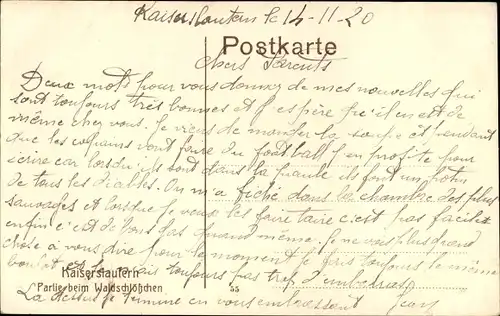 Kaiserslautern le 14-11-20
Postkarte
chers Parents
Deux mots pour vous donner de mes nouvelles qui
sont toujours très bonnes et j'espère qu'il en et de
même chez vous. Je viens de manger la soupe et pendant
que les copains vont faire du football j'en profite pour
écrire car lorsqu'ils sont dans la piaule ils font un potin
de tous les diables. On m'a fiché dans la chambre des plus
sauvages et lorsque je veux les faire taire c'est pas facile
enfin c'est de bons gas quand même. Je ne vois plus grand
chose à vous dire pour le moment je fais toujours le même
boulot et suis toujours pas trop d'embarras
Kaiserslautern
Partie beim Waldschlößchen
55
La dessus je termine en vous embrassant Jean